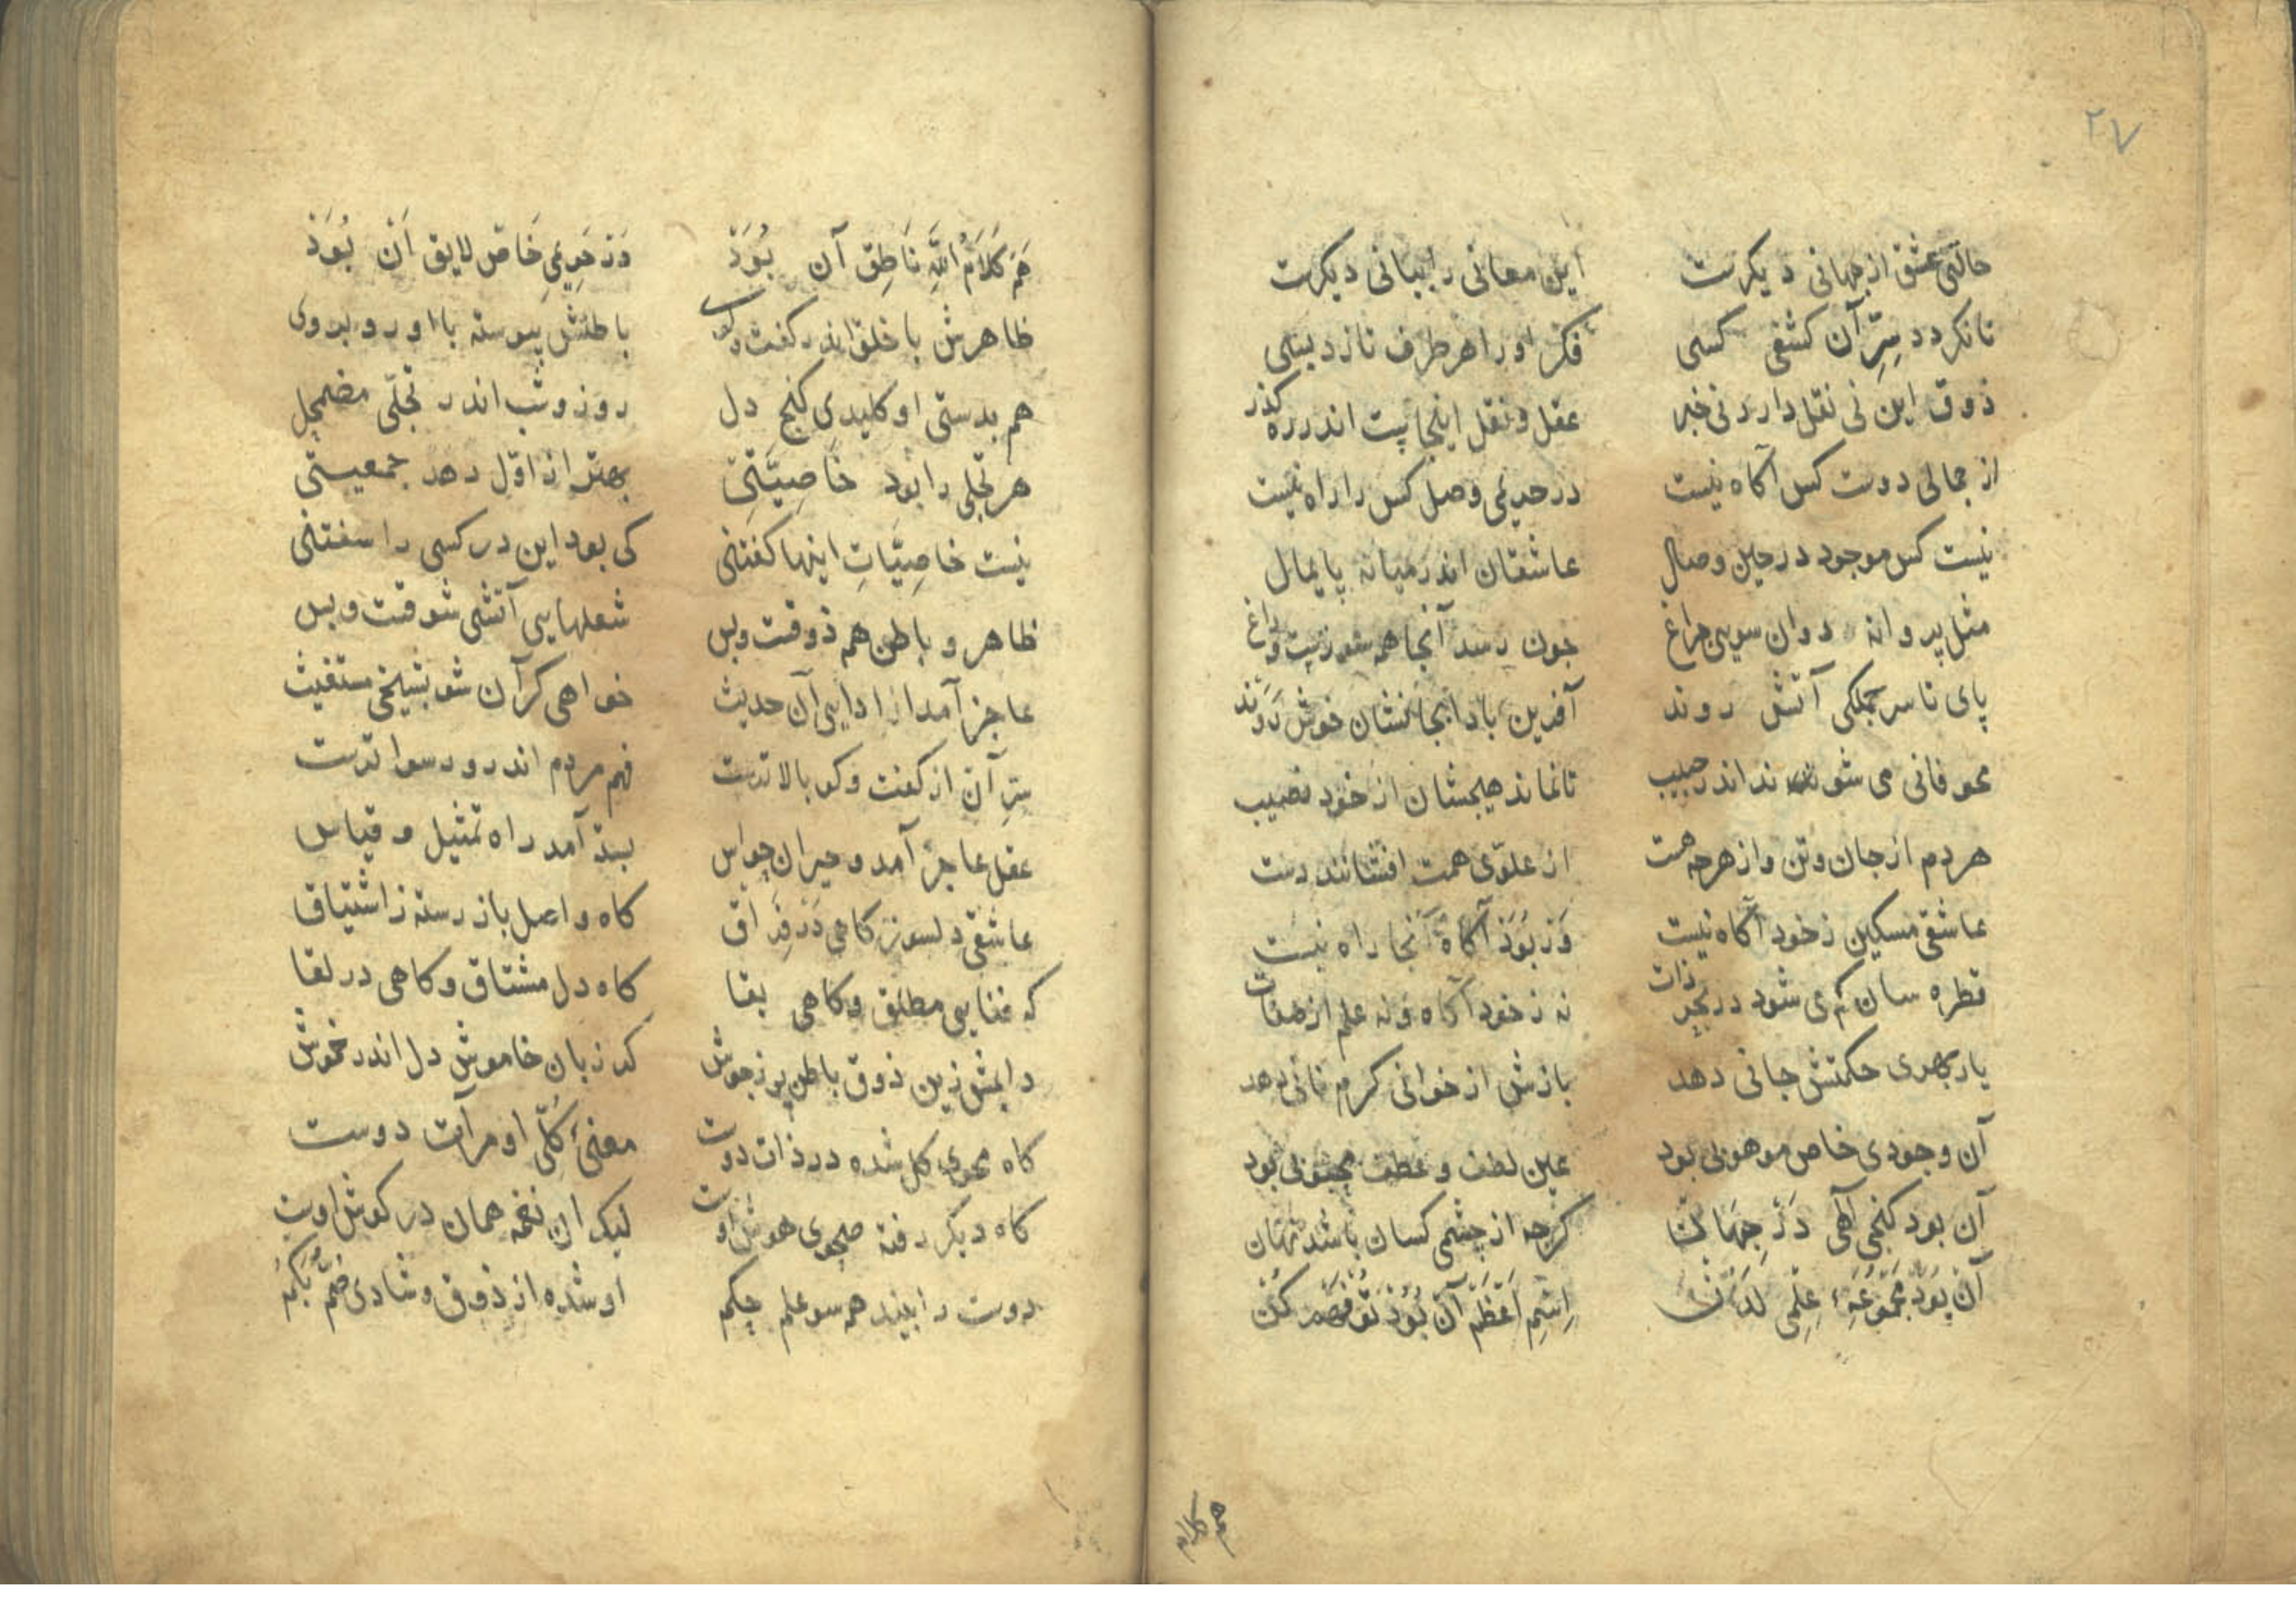 ۲۷
حالتی عشق از جهانی دیکرست این معانی را بیانی دیکرست
تا نکردد سِرِّ آن کشفی کسی فکر او را هر طرف تازد بسی
ذوق این نی نقل دارد نی خبر عقل و نقل اینجا پست اندر ره کذر
از جمالی دوست کس آکاه نیست در حریمی وصل کس را راه نیست
نیست کس موجود در حین وصال عاشقان اندر میانه پایمال
مثل پروانه دوان سویی جراغ جون رسد آنجا همه سوزیست و داغ
پای تا سر جملکی آتش روند آفرین باد آنجا کشان خوش رَوَند
محو فانی می شوند اندر حبیب تا نماند هیجشان از خود نصیب
هر دم از جان و تن و از هرجه هست از علوّی همت افشانند دست
عاشقی مسکین ز خود آکاه نیست وَر بُوَذ آکاهْ آنجا راه نیست
قطره سان کم می شود در بحر ذات نه ز خود آکاه و نه علم از صفات
یار بهری حکمتش جانی دهد بازش از خوانی کرم نانی دهد
آن وجودی خاص موهوبی بود عین لطف و عطف محبوبی بود
آن بود کنجی آلهی دَرْ جِهَان کرجه از چشمی کسان باشد نهان
آن بُوَدْ مَجْمُوعَهِٔ عِلْمِی لَدُنْ اِسْمِ اَعْظَمْ آن بُوَذْ تَوْ فهم کُنْ
هم کلام
هَم کَلَامُ اللّٰهِ نَاطِق آن بُوَذْ وَز حَرِیمِی خَاصْ لایق آنْ بُوَذْ
ظاهرش با خلق اندر کفت و کوی باطنش پیوسته با او رو بروی
هم بدستی او کلیدی کنج دل روز و شب اندر تجلّی مضمحِل
هر تجلی را بود خَاصِیَّتی بهتر از اوّل دهد جمعیتی
نیست خاصِیَّاتِ اینها کفتنی کی بود این در کسی را سفتنی
ظاهر و باطن هم ذوقست و بس شعلهایی آتشی شوقست و بس
عاجز آمد از ادایی آن حدیث خواهی کر آن شو بشیخی مستغیث
سِرِّ آن از کفت و کو بالاترست فهم مردم اندرو رسواترست
عقل عاجز آمد و حیران حواس بسته آمد راه تمثیل و قیاس
عاشقی دلسوز کاهی دَرْ فِرَاق کاه واصل باز رسته ز اشتیاق
که فنایی مطلق و کاهی بقا کاه دل مشتاق و کاهی در لقا
دایمش زین ذوق باطن پر ز جوش کر زبان خاموش دل اندر خروش
کاه محوی کل شده در ذات دوست معنیٔ کُلّی او مرآت دوست
کاه دیکر رفته صحوی هوش اوست لیک ان نغمه همان در کوش اوست
دوست را بیند همه سو علم حِکم او شده از ذوق و شادی صُمٌّ بُکْمٌ